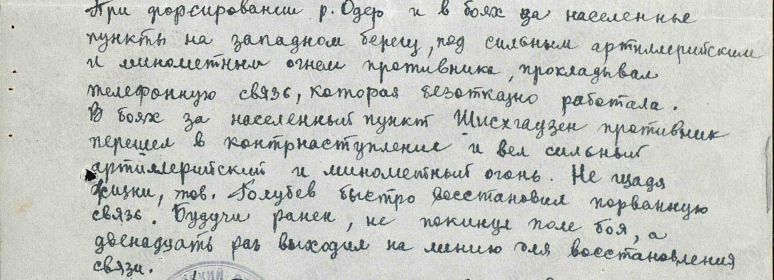 При форсировании р. Одер и в боях за населенные
пункты на западном берегу, под сильным артиллерийским
и минометным огнем противника, прокладывал
телефонную связь, которая безотказно работала.
В боях за населенный пункт Шисхгаузен противник
перешел в контрнаступление и вел сильный
артиллерийский и минометный огонь. Не щадя
жизни, тов. Голубев быстро восстановил порванную
связь. Будучи ранен, не покинул поле боя, а
двенадцать раз выходил на линию для восстановления
связи.